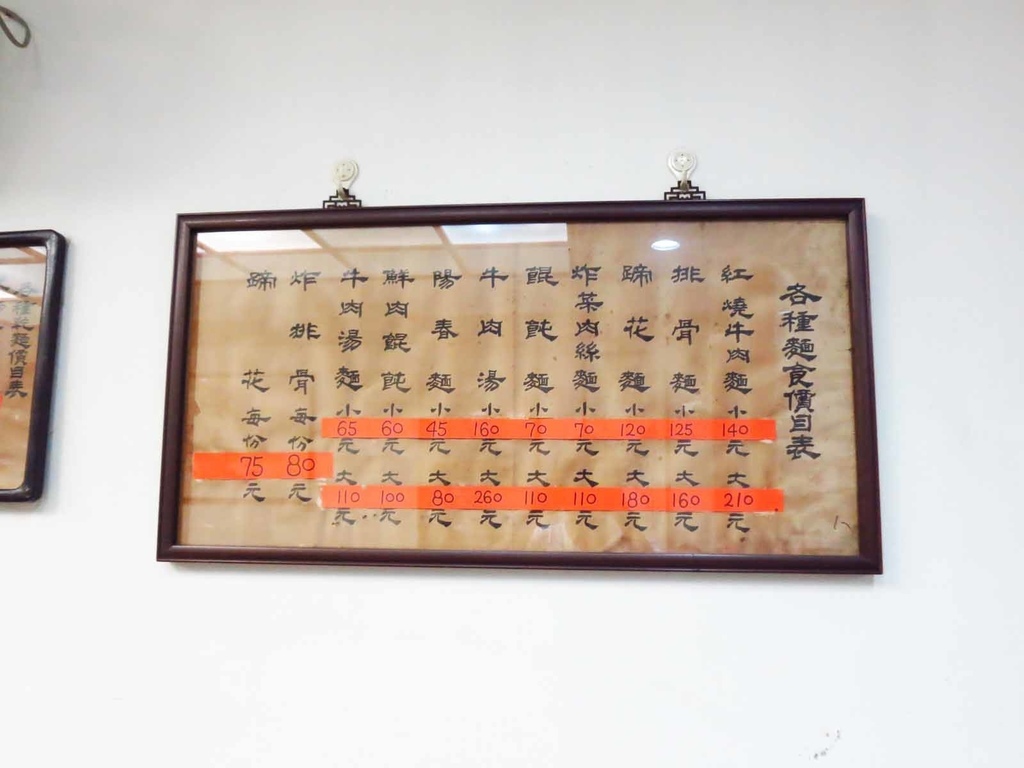 各種麵食價目表
紅燒牛肉麵小140元大210元
排骨麵小125元大160元
蹄花麵小120元大180元
炸菜肉絲麵小70元大110元
餛飩麵小70元大110元
牛肉湯小160元大260元
陽春麵小45元大80元
鮮肉餛飩小60元大100元
牛肉湯麵小65元大110元
炸排骨每份80元
蹄花每份75元
各種乾麵價目表